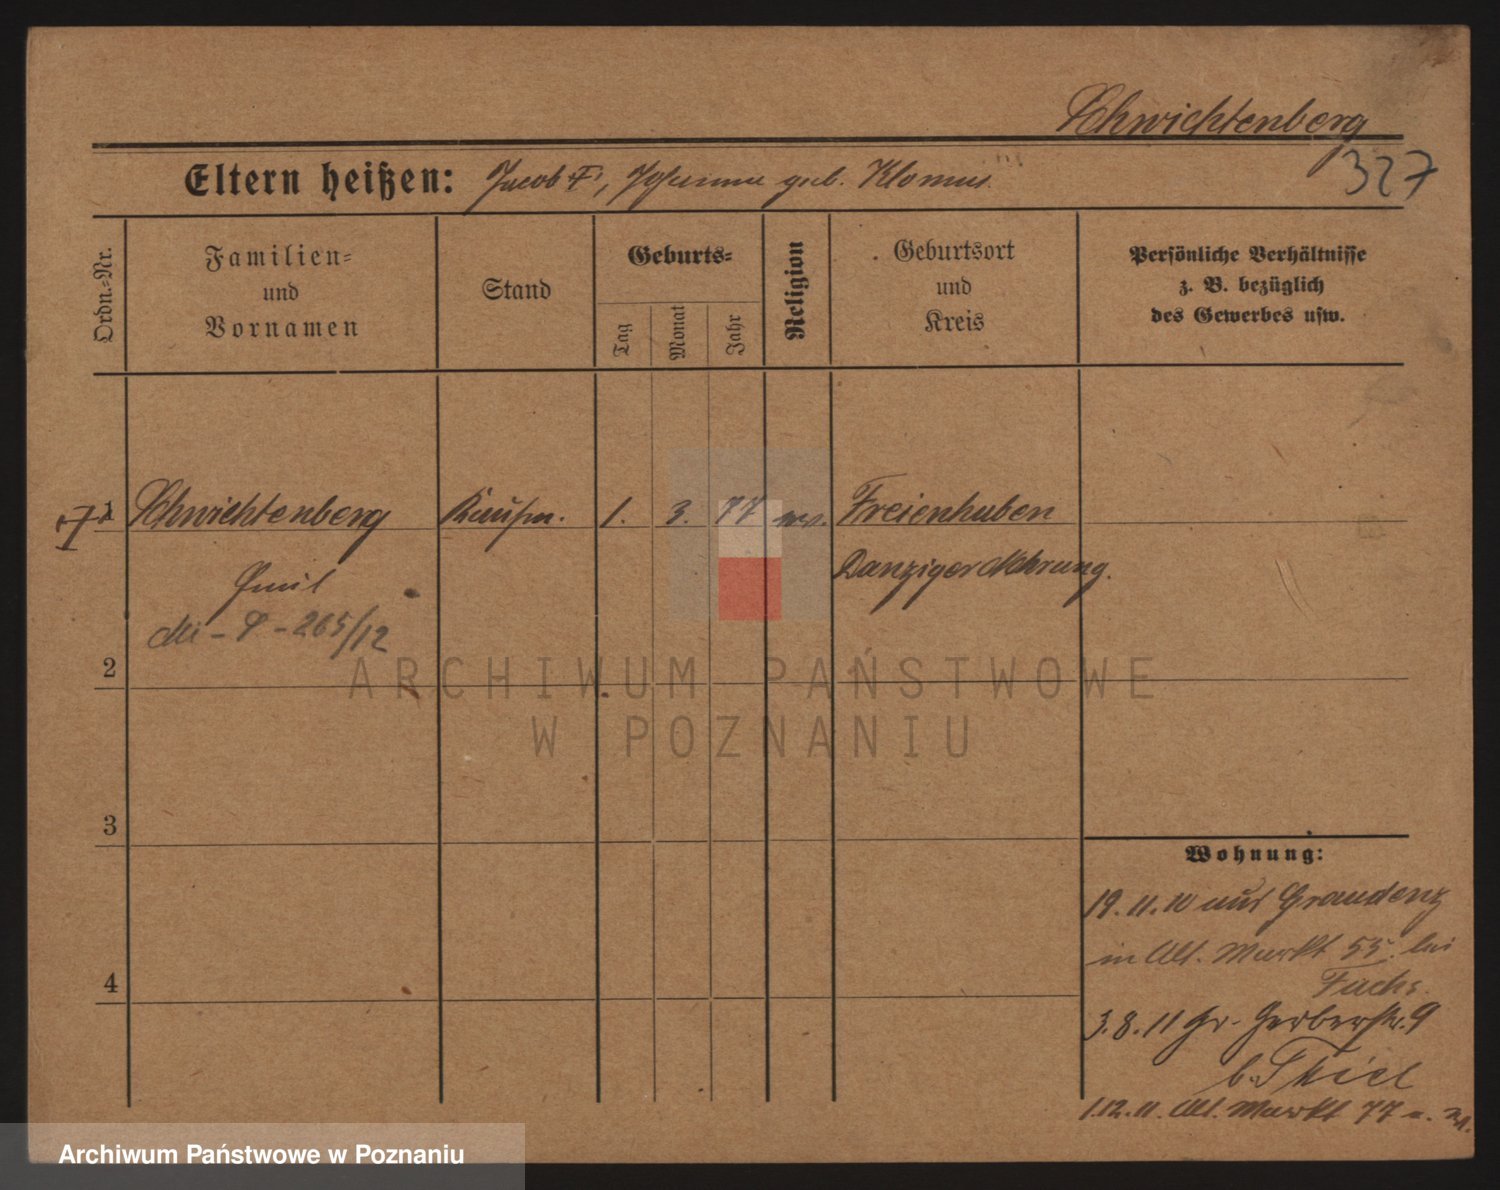 Schwichtenberg
327
Eltern heißen: Jacob †, Johanna geb. Klomus
Ordn.-Nr.
Familien-
und
Vornamen
Stand
Geburts-
Tag
Monat
Jahr
Religion
Geburtsort
und
Kreis
Persönliche Verhältnisse
z. B. bezüglich
des Gewerbes usw.
1 Schwichtenberg Kaufm. 1. 3. 77 Freienhuben
Emil Danziger Nehrung.
265/12
2
ARCHIWUM PAŃSTWOWE
W POZNANIU
3
Wohnung:
19.11.10 aus Graudenz
in Alt. Markt 55. bei
Fuchs.
4
3.8.11 Gr. Gerberstr. 9
b. Thiel
1.12.11. Alt. Markt 77
Archiwum Państwowe w Poznaniu